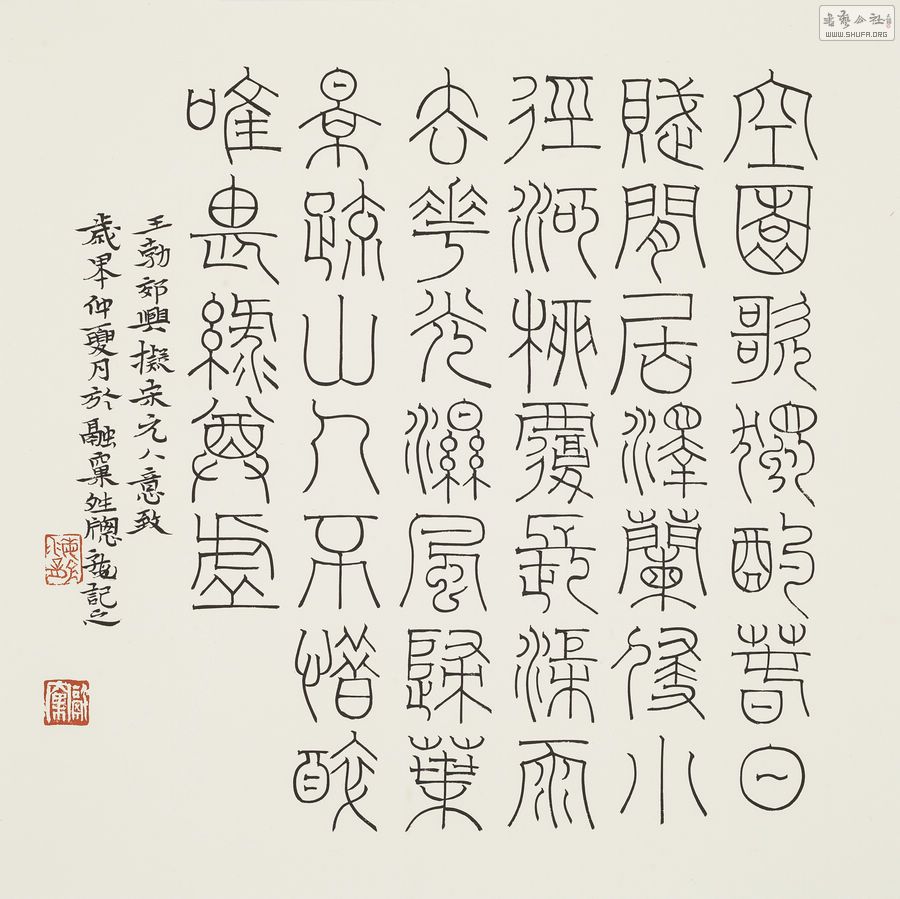 書藝公社
WWW.SHUFA.ORG
空園歌獨酌春日
賦閒居澤蘭侵小
徑河柳覆長渠雨
去華光濕風歸葉
景疏山人不惜醉
唯畏綠尊虛
王勃郊興擬宋元人意致
歲仲夏月於融牕記之